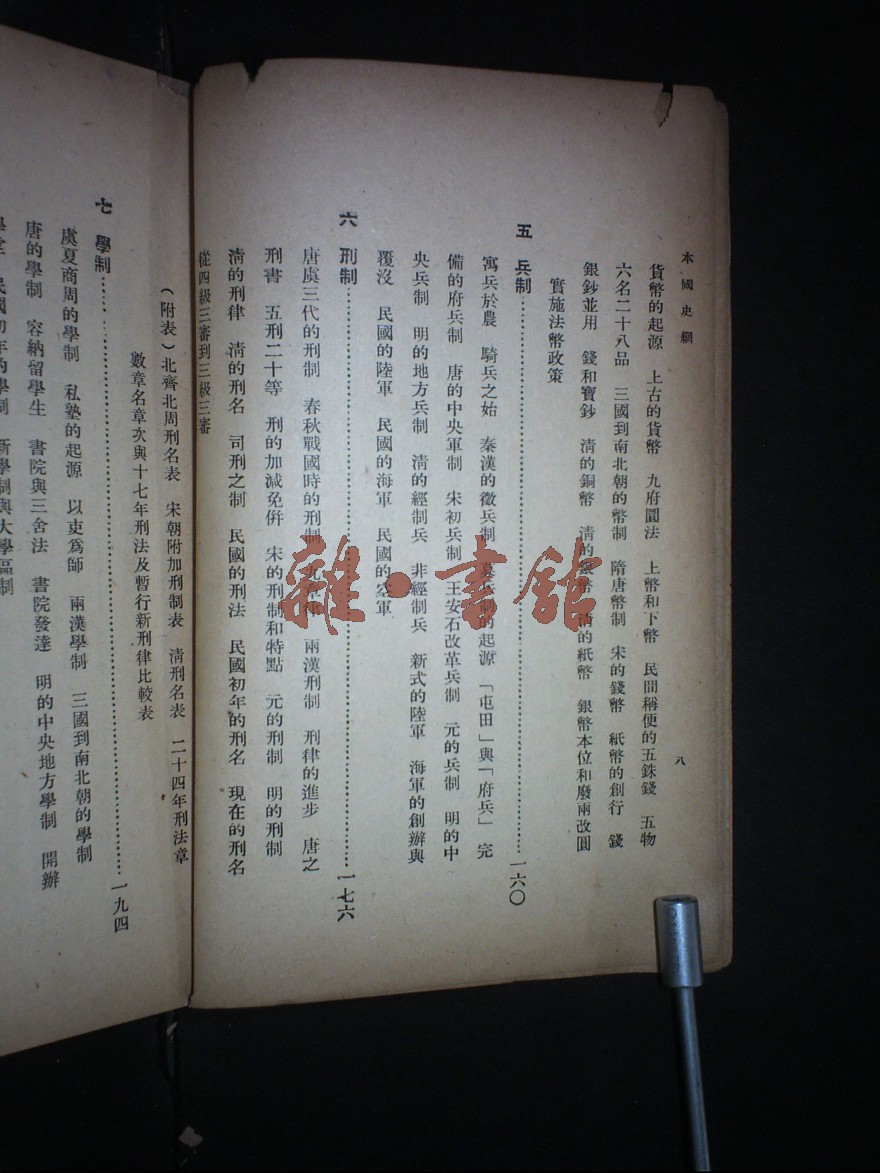 本國史綱
八
貨幣的起源 上古的貨幣 九府圜法 上幣和下幣 民間稱便的五銖錢 五物
六名二十八品 三國到南北朝的幣制 隋唐幣制 宋的錢幣 紙幣的創行 錢
銀鈔並用 錢和寶鈔 清的銅幣 清的銀幣 清的紙幣 銀幣本位和廢兩改圓
實施法幣政策
五 兵制……一六〇
寓兵於農 騎兵之始 秦漢的徵兵制 的起源 「屯田」與「府兵」 完
備的府兵制 唐的中央軍制 宋初兵制 王安石改革兵制 元的兵制 明的中
央兵制 明的地方兵制 清的經制兵 非經制兵 新式的陸軍 海軍的創辦與
覆沒 民國的陸軍 民國的海軍 民國的空軍
六 刑制……一七六
唐虞三代的刑制 春秋戰國時的刑制 九章律 兩漢刑制 刑律的進步 唐之
刑書 五刑二十等 刑的加減免倂 宋的刑制和特點 元的刑制 明的刑制
清的刑律 清的刑名 司刑之制 民國的刑法 民國初年的刑名 現在的刑名
從四級三審到三級三審
(附表)北齊北周刑名表 宋朝附加刑制表 清刑名表 二十四年刑法章
數章名章次與十七年刑法及暫行新刑律比較表
七 學制……一九四
虞夏商周的學制 私塾的起源 以吏爲師 兩漢學制 三國到南北朝的學制
唐的學制 容納留學生 書院與三舍法 書院發達 明的中央地方學制 開辦
學堂 民國初年的學制 新學制與大學區制
雜·書館